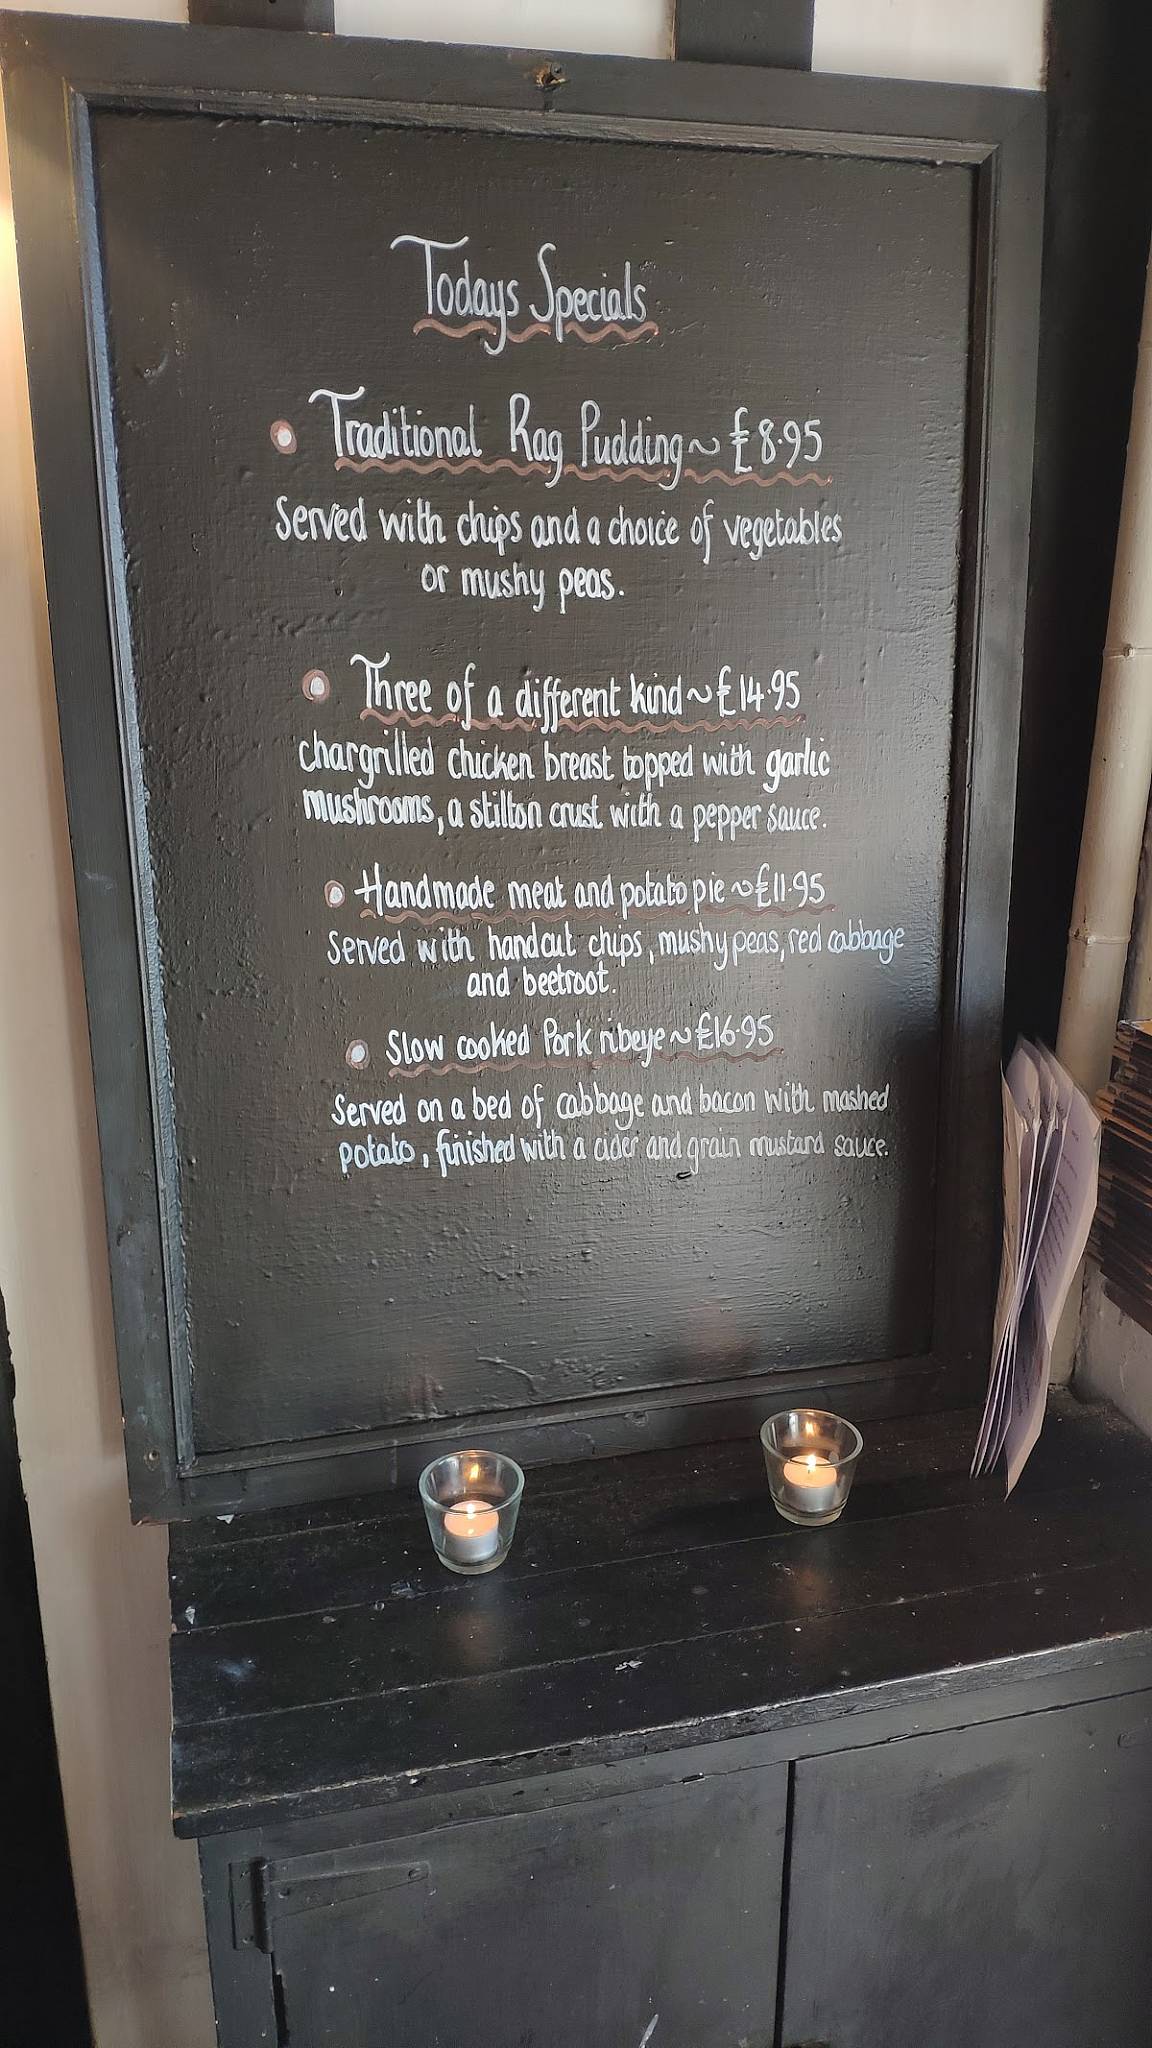 Todays Specials
Traditional Rag Pudding ~ £8.95
Served with chips and a choice of vegetables
or mushy peas.
Three of a different kind ~ £14.95
chargrilled chicken breast topped with garlic
mushrooms, a stilton crust with a pepper sauce.
Handmade meat and potato pie ~ £11.95
Served with handcut chips, mushy peas, red cabbage
and beetroot.
Slow cooked Pork ribeye ~ £16.95
Served on a bed of cabbage and bacon with mashed
potato, finished with a cider and grain mustard sauce.